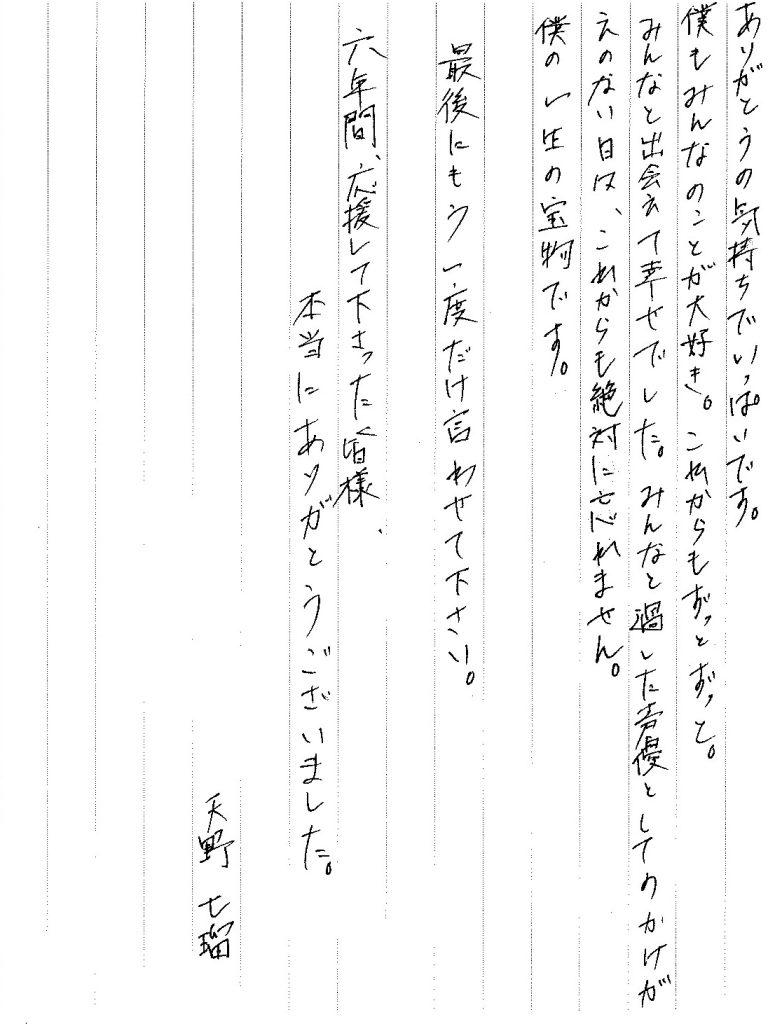 ありがとうの気持ちでいっぱいです。
僕もみんなのことが大好き。これからもずっとずっと。
みんなと出会えて幸せでした。みんなと過した声優としてのかけが
えのない日は、これからも絶対に忘れません。
僕の一生の宝物です。
最後にもう一度だけ言わせて下さい。
六年間、応援して下さった皆様、
本当にありがとうございました。
天野 七瑠